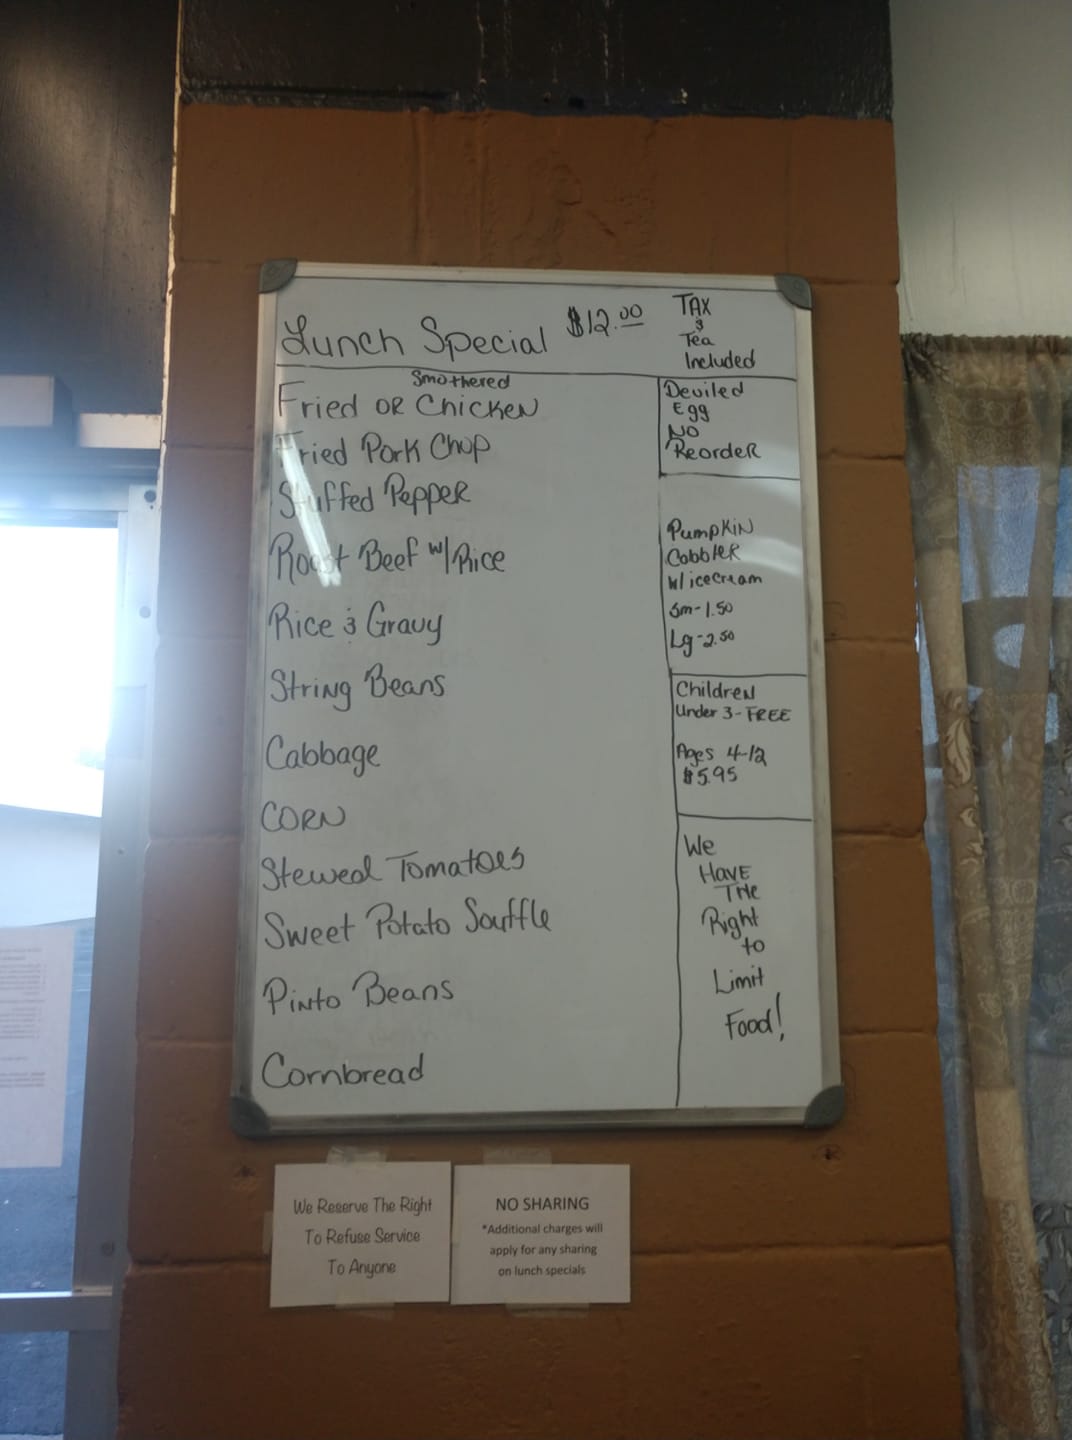 Lunch Special $12.00
TAX
&
Tea
Included
Smothered
Fried OR Chicken
Fried Pork Chop
Stuffed Pepper
Roast Beef w/Rice
Rice & Gravy
String Beans
Cabbage
CORN
Stewed Tomatoes
Sweet Potato Souffle
Pinto Beans
Cornbread
Deviled
Egg
NO
Reorder
Pumpkin
Cobbler
W/icecream
Sm-1.50
Lg-2.50
Children
Under 3-FREE
Ages 4-12
$5.95
We
Have
The
Right
to
Limit
Food!
We Reserve The Right
To Refuse Service
To Anyone
NO SHARING
*Additional charges will
apply for any sharing
on lunch specials